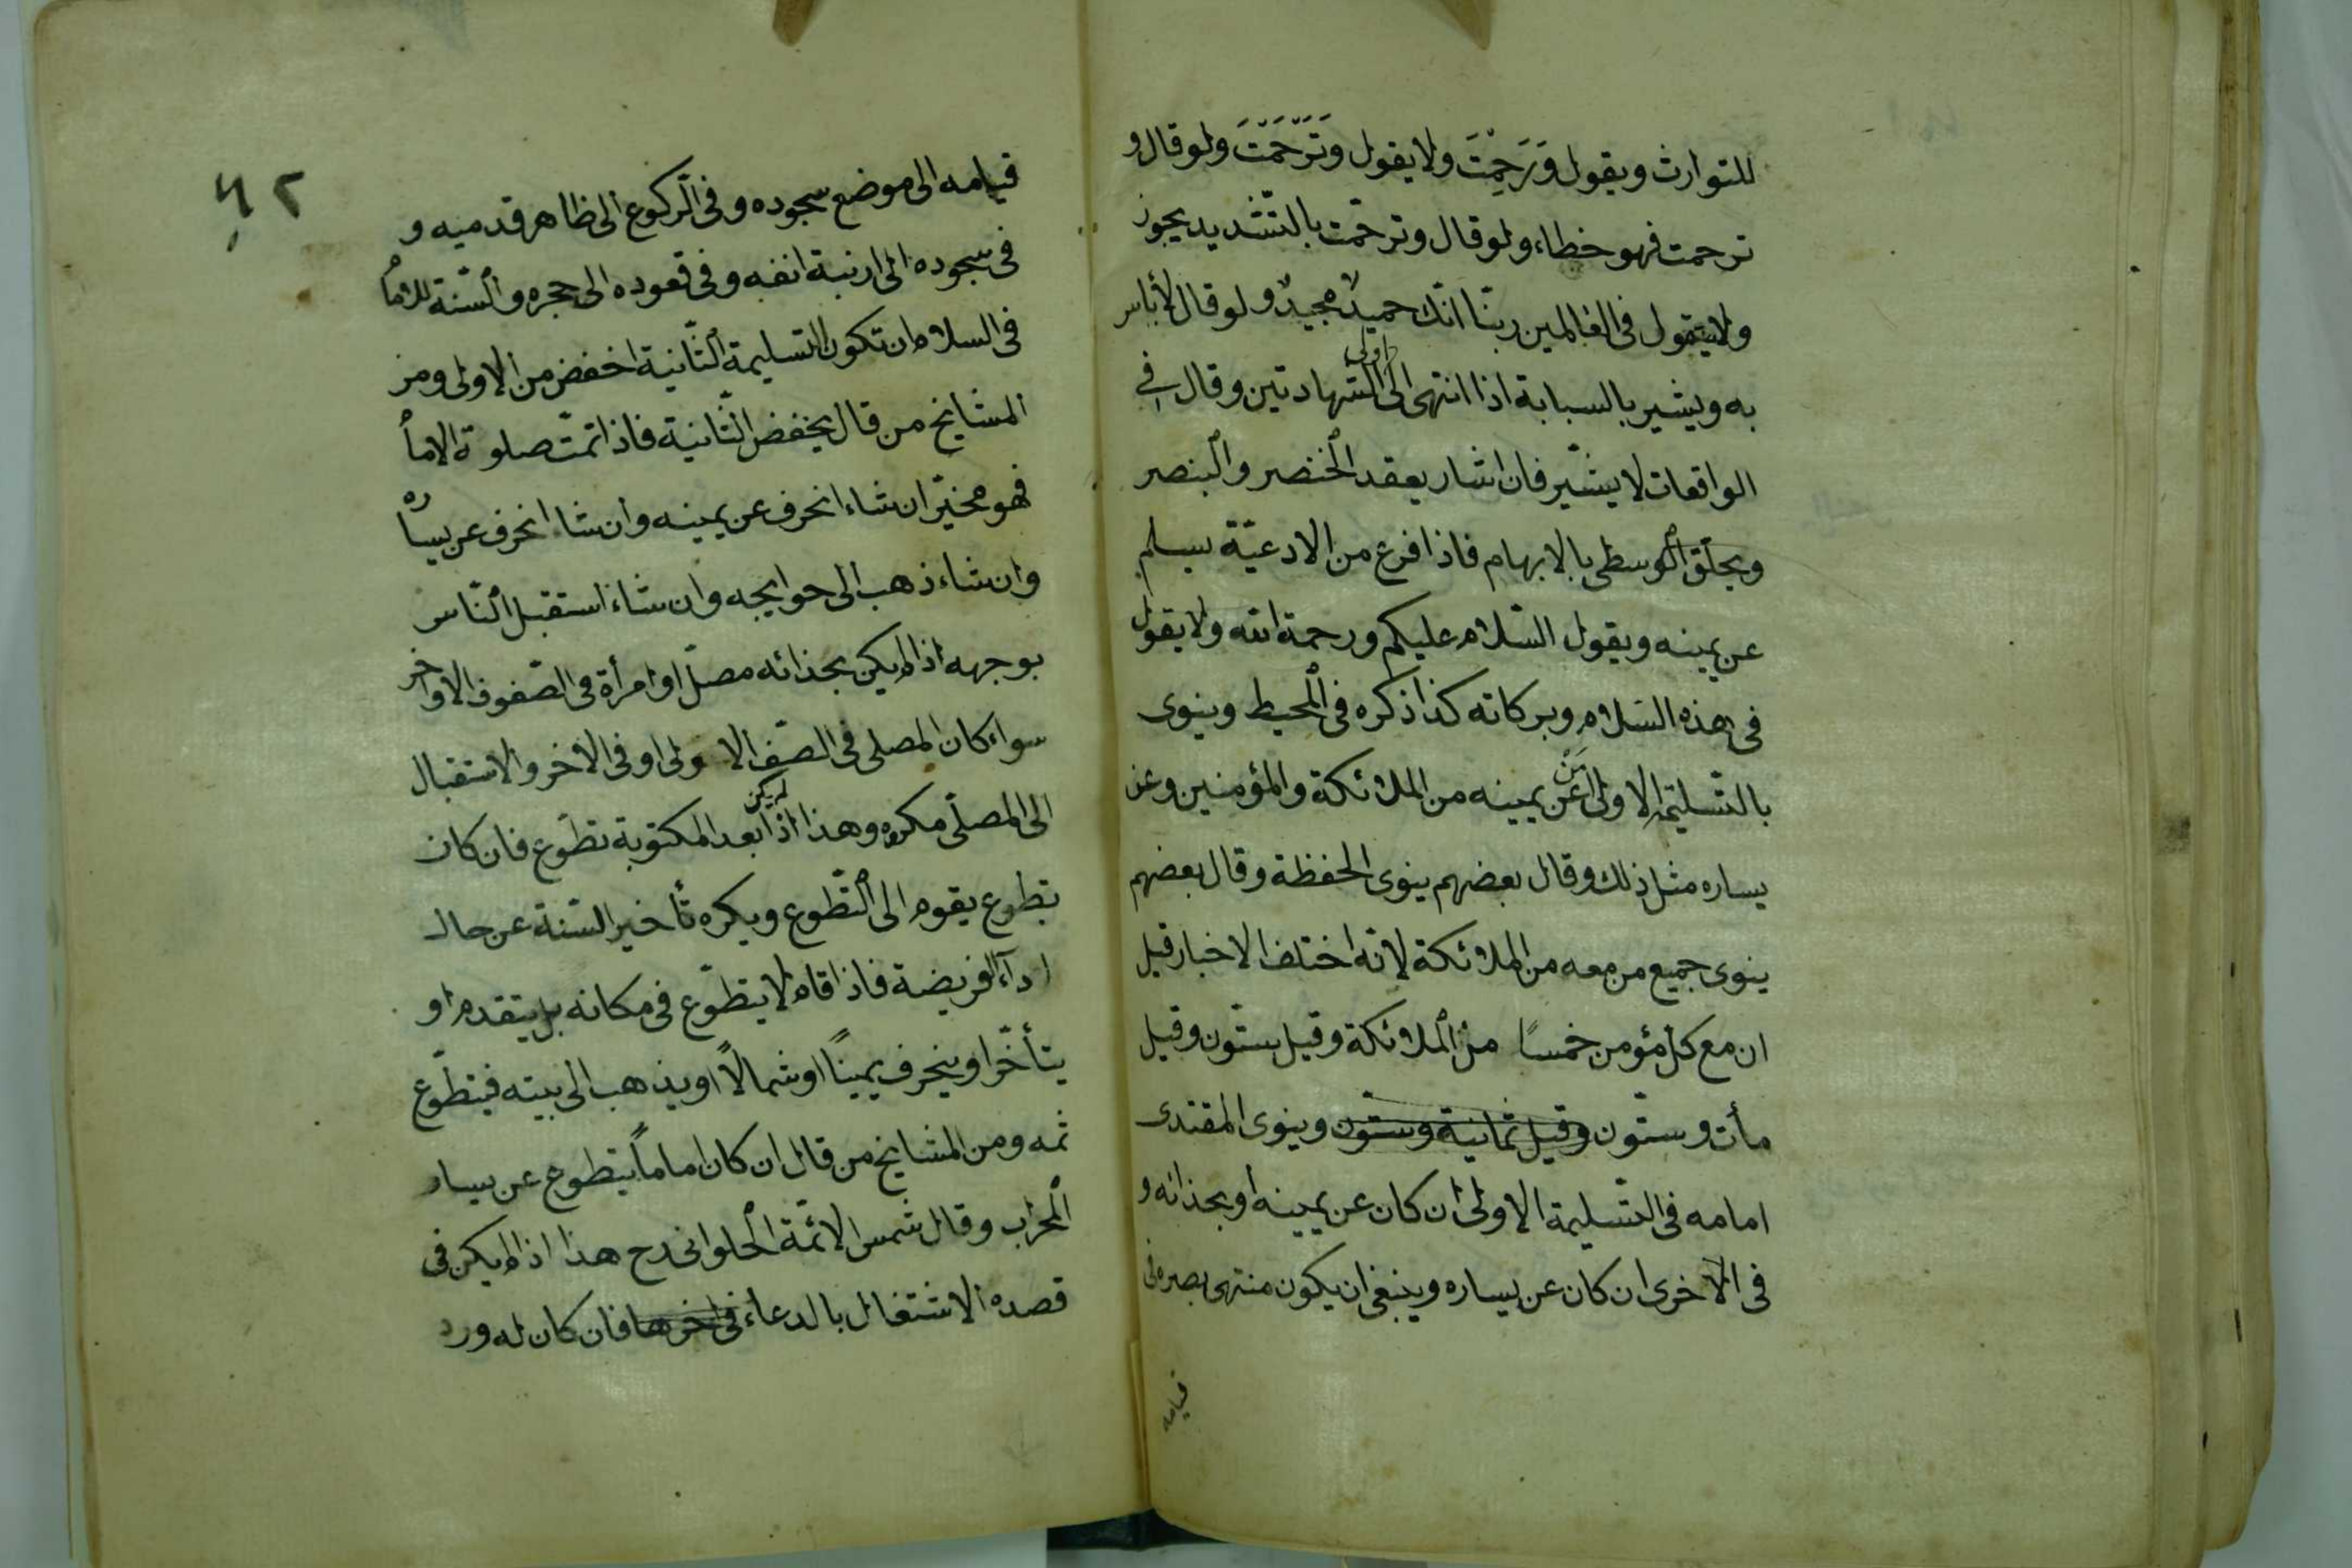 للتوارث ويقول وَرَحِمْتَ ولا يقول وَتَرَحَّمْتَ ولو قال و
ترحمت فهو خطاء ولو قال وترحّمت بالتّشديد يجوز
ولا يقول فى العالمين ربنّا انّك حميدٌ مجيدٌ ولو قال لا بأس
به ويشير بالسبابة اذا انتهى الى اولى الشّهادتين وقال فى
الواقعات لا يشّير فان اشار يعقد الخنصر والبنصر
ويحلّق الوسطى بالابهام فاذا فرغ من الادعيّة يسلم
عن يمينه ويقول السّلام عليكم ورحمة الله ولا يقول
فى هذه السّلام وبركاته كذا ذكره فى المحيط وينوى
بالتّسليمة الاولى مَنْ عن يمينه من الملائكة والمؤمنين وعن
يساره مثل ذلك وقال بعضهم ينوى الحفظة وقال بعضهم
ينوى جميع من معه من الملائكة لانّه اختلف الاخبار قيل
ان مع كلّ مؤمن خمسًا من الملائكة وقيل ستّون وقيل
مأت وستّون وقيل ثمانية وستّون وينوى المقتدى
امامه فى التّسليمة الاولى ان كان عن يمينه او بحذائه و
فى الاخرى ان كان عن يساره وينبغى ان يكون منتهى بصره فى
قيامه
٦٢
قيامه الى موضع سجوده وفى الرّكوع الى ظاهر قدميه و
فى سجوده الى ارنبة انفه وفى قعوده الى حجره والسّنة للامام
فى السلام ان تكون التسليمة الثّانية اخفض من الاولى ومن
المشايخ من قال يخفض الثّانية فاذا تمّت صلوة الامام
فهو مخيّر ان شاء انحرف عن يمينه وان شا انحرف عن يساره
وان شاء ذهب الى حوايجه وان شاء استقبل النّاس
بوجهه اذا لم يكن بحذائه مصلّ او امرأة فى الصّفوف الاواخر
سواء كان المصلى فى الصّف الاولى او فى الاخر والاستقبال
الى المصلّى مكروه وهذا اذا لم يكن بعد المكتوبة تطوّع فان كان
تطوع يقوم الى التّطوع ويكره تأخير السّنة عن حال
اداء الفريضة فاذا قام لا يتطوّع فى مكانه بل يتقدم او
يتأخّر او ينحرف يمينًا او شمالًا او يذهب الى بيته فيتطوّع
ثمه ومن المشايخ من قال ان كان اماماً يتطوع عن يسار
المحراب وقال شمس الائمّة الحلوانى رح هذا اذا لم يكن فى
قصده الاشتغال بالدعاء فى اخرها فان كان له ورد